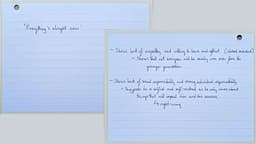 "Everything's alright now"
- Shows lack of empathy, and willing to learn and reflect
- Shows that not everyone will be easily won over from the younger generation
- Shows lack of social responsibility and strong individual responsibility
- Suggests he is selfish and self-centred as he only cares about
things that will impact him and his success